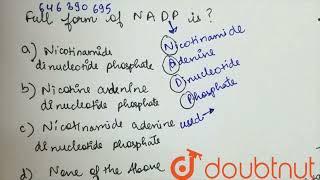 646390695
Full form of NADP is?
a) Nicotinamide
dinucleotide phosphate
b) Nicotine adenine
dinucleotide phosphate
c) Nicotinamide adenine
dinucleotide phosphate
d) None of the Above
Nicotinamide
Adenine
Dinucleotide
Phosphate
used→
doubtnut